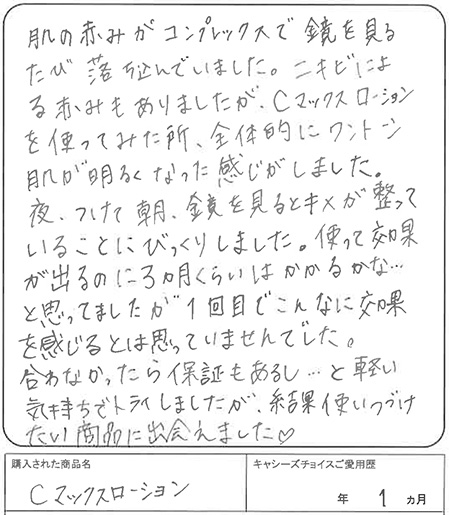 肌の赤みがコンプレックスで鏡を見る
たび落ち込んでいました。ニキビによ
る赤みもありましたが、Cマックスローション
を使ってみた所、全体的にワントーン
肌が明るくなった感じがしました。
夜、つけて朝、鏡を見るとキメが整って
いることにびっくりしました。使って効果
が出るのに3ヵ月くらいはかかるかな…
と思ってましたが1回目でこんなに効果
を感じるとは思っていませんでした。
合わなかったら保証もあるし…と軽い
気持ちでトライしましたが、結果使いつづけ
たい商品に出会えました♡
購入された商品名
Cマックスローション
キャシーズチョイスご愛用歴
年 1 ヵ月